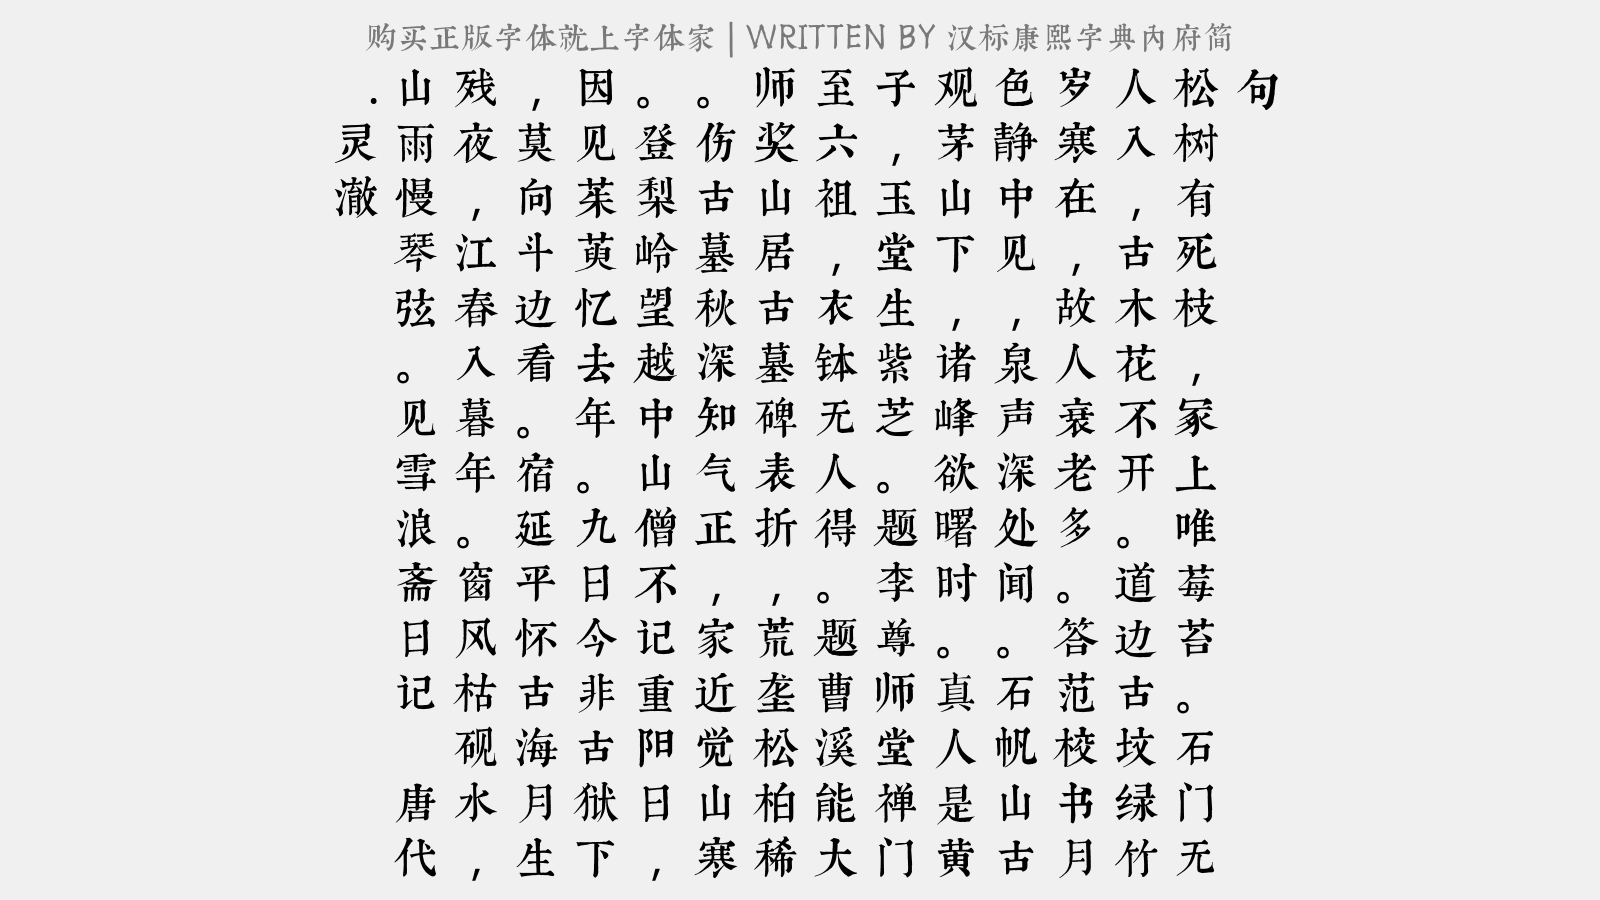 购买正版字体就上字体家 | WRITTEN BY 汉标康熙字典内府简
句
松树有死枝，冢上唯莓苔。石门无
人入，古木花不开。道边古坟绿竹
岁寒在，故人衰老多。答范校书月
色静中见，泉声深处闻。石帆山古
观茅山下，诸峰欲曙时。真人是黄
子，玉堂生紫芝。题李尊师堂禅门
至六祖，衣钵无人得。题曹溪能大
师奖山居古墓碑表折，荒垄松柏稀
。伤古墓秋深知气正，家近觉山寒
。登梨岭望越中山僧不记重阳日，
因见茱萸忆去年。九日今非古狱下
，莫向斗边看。宿延平怀古海月生
残夜，江春入暮年。窗风枯砚水，
山雨慢琴弦。见雪浪斋日记 唐代
.灵澈